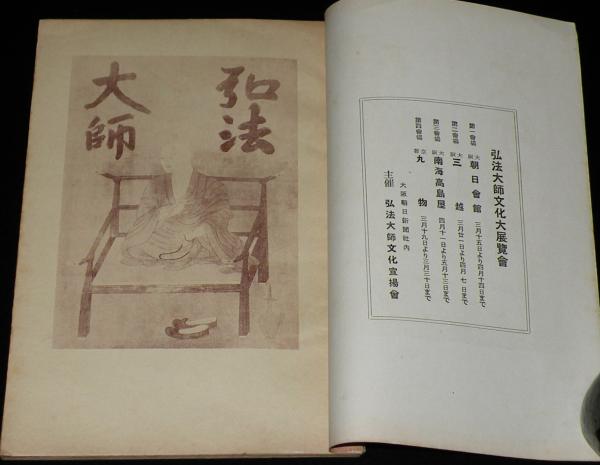 弘法
大師
弘法大師文化大展覽會
第一會場 大阪 朝日會館 三月十五日より四月十四日まで
第二會場 大阪 三越 三月廿一日より四月七日まで
第三會場 大阪 南海高島屋 四月十一日より五月十三日まで
第四會場 京都 丸物 三月十九日より三月三十日まで
大阪朝日新聞社內
主催 弘法大師文化宣揚會